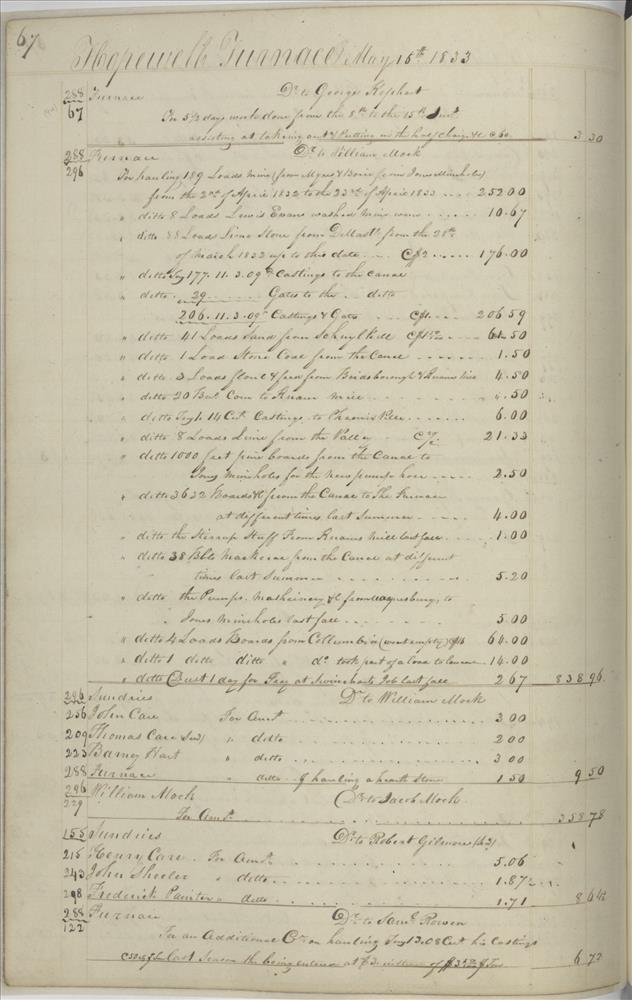 67
Hopewell Furnace May 15th 1833
288 Furnace Dr to George Rephart
67 For 5 1/2 days work done from the 8th to the 15th Inst
assisting at taking out & Putting in the half charge &c C 60 3.30
288 Furnace Dr to William Mock
296 For hauling 189 Loads mine (from Myers & Bone from Jones Mineholes)
from the 2nd of April 1832 to the 23rd of April 1833 .... 252.00
" ditto 8 Loads Lewis Evans washed mine 10.67
" ditto 88 Loads Lime Stone from from the 28th
of March 1832 up to this date .... C$2 ..... 176.00
" ditto Tons 177.11.3.09 Castings to the Canal
" ditto 29 ....... Gates to the .. ditto
206.11.3.09 Castings & Gates ... C$1 .... 206.59
" ditto 41 Loads Sand from Schuylkill 61.50
" ditto 1 Load Stone Coal from the Canal ....... 1.50
" ditto 3 Loads flour & feed from Birdsborough & Knauers Mill 4.50
" ditto 20 Bus. Corn to Knauer Mill .50
" ditto Tons 1.14 Cwt Castings to 6.00
" ditto 8 Loads Lime from the Valley 21.33
" ditto 1000 feet pine boards from the Canal to
Jones mineholes for the new pump house ..... 2.50
" ditto 3632 Boards &c from the Canal to The Furnace
at different times last Summer ..... 4.00
" ditto the Stirrup Stuff From Knauers Mill last fall ... 1.00
" ditto 38 Bbls Mackerel from the Canal at different
times last Summer .......... 5.20
" ditto the Pumps, Mashinery &c from Waynesburg to
Jones Mineholes last fall ......... 5.00
" ditto 4 Loads Boards from Collumbia (went empty) $16 64.00
" ditto 1 ditto ditto " do took part of a load to 14.00
" ditto Dust 1 day for at Swineharts Job last fall 2.67 838.96
296 Sundries Dr to William Mock
256 John Care For Amt ............ 3.00
209 Thomas Care " ditto ........... 2.00
223 Barney Hart " ditto ............ 3.00
288 Furnace " ditto of hauling a hearth Stone 1.50 9.50
296 William Mock Dr to Jacob Mock
229 For Amt ............ 358.78
155 Sundries Dr to Robert Gilmore
215 Henry Care For Amt ............ 5.06
243 John Sheeler " ditto ............ 1.87 1/2
298 Frederick Painter " ditto ............ 1.71 8.64 1/2
288 Furnace Dr to Saml Rowen
122 For an Additional Cr on hauling Tons 13.08 Cwt his Castings
last Season the being entered at $3 instead of $3.50 Ton 6.72